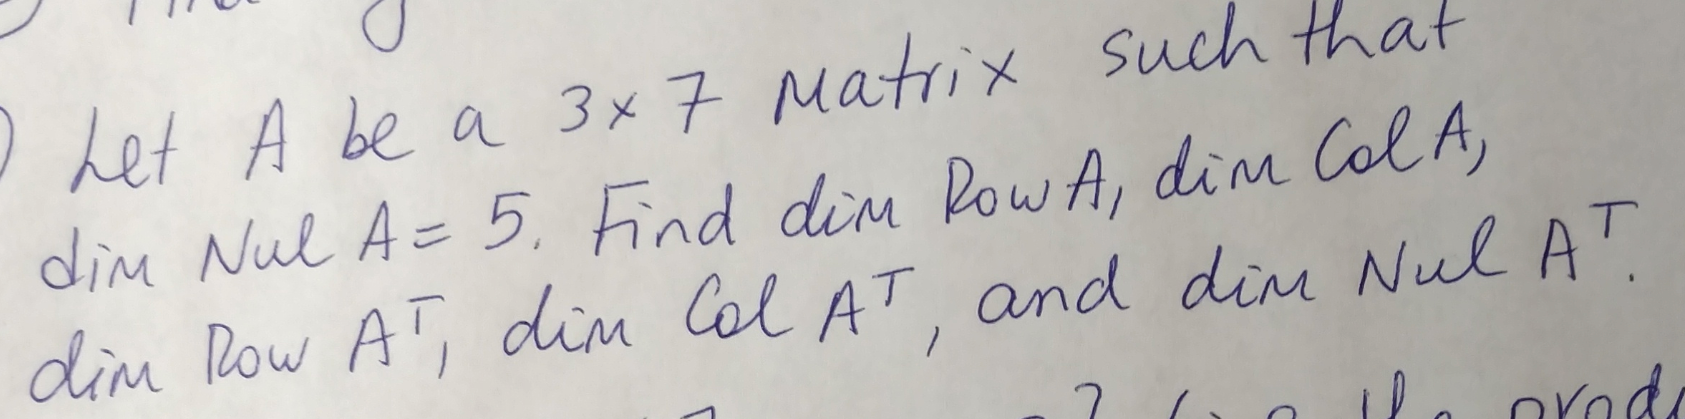 ) Let A be a 3x7 Matrix such that
dim Nul A = 5. Find dim Row A, dim Col A,
dim Row Aᵀ, dim Col Aᵀ, and dim Nul Aᵀ.